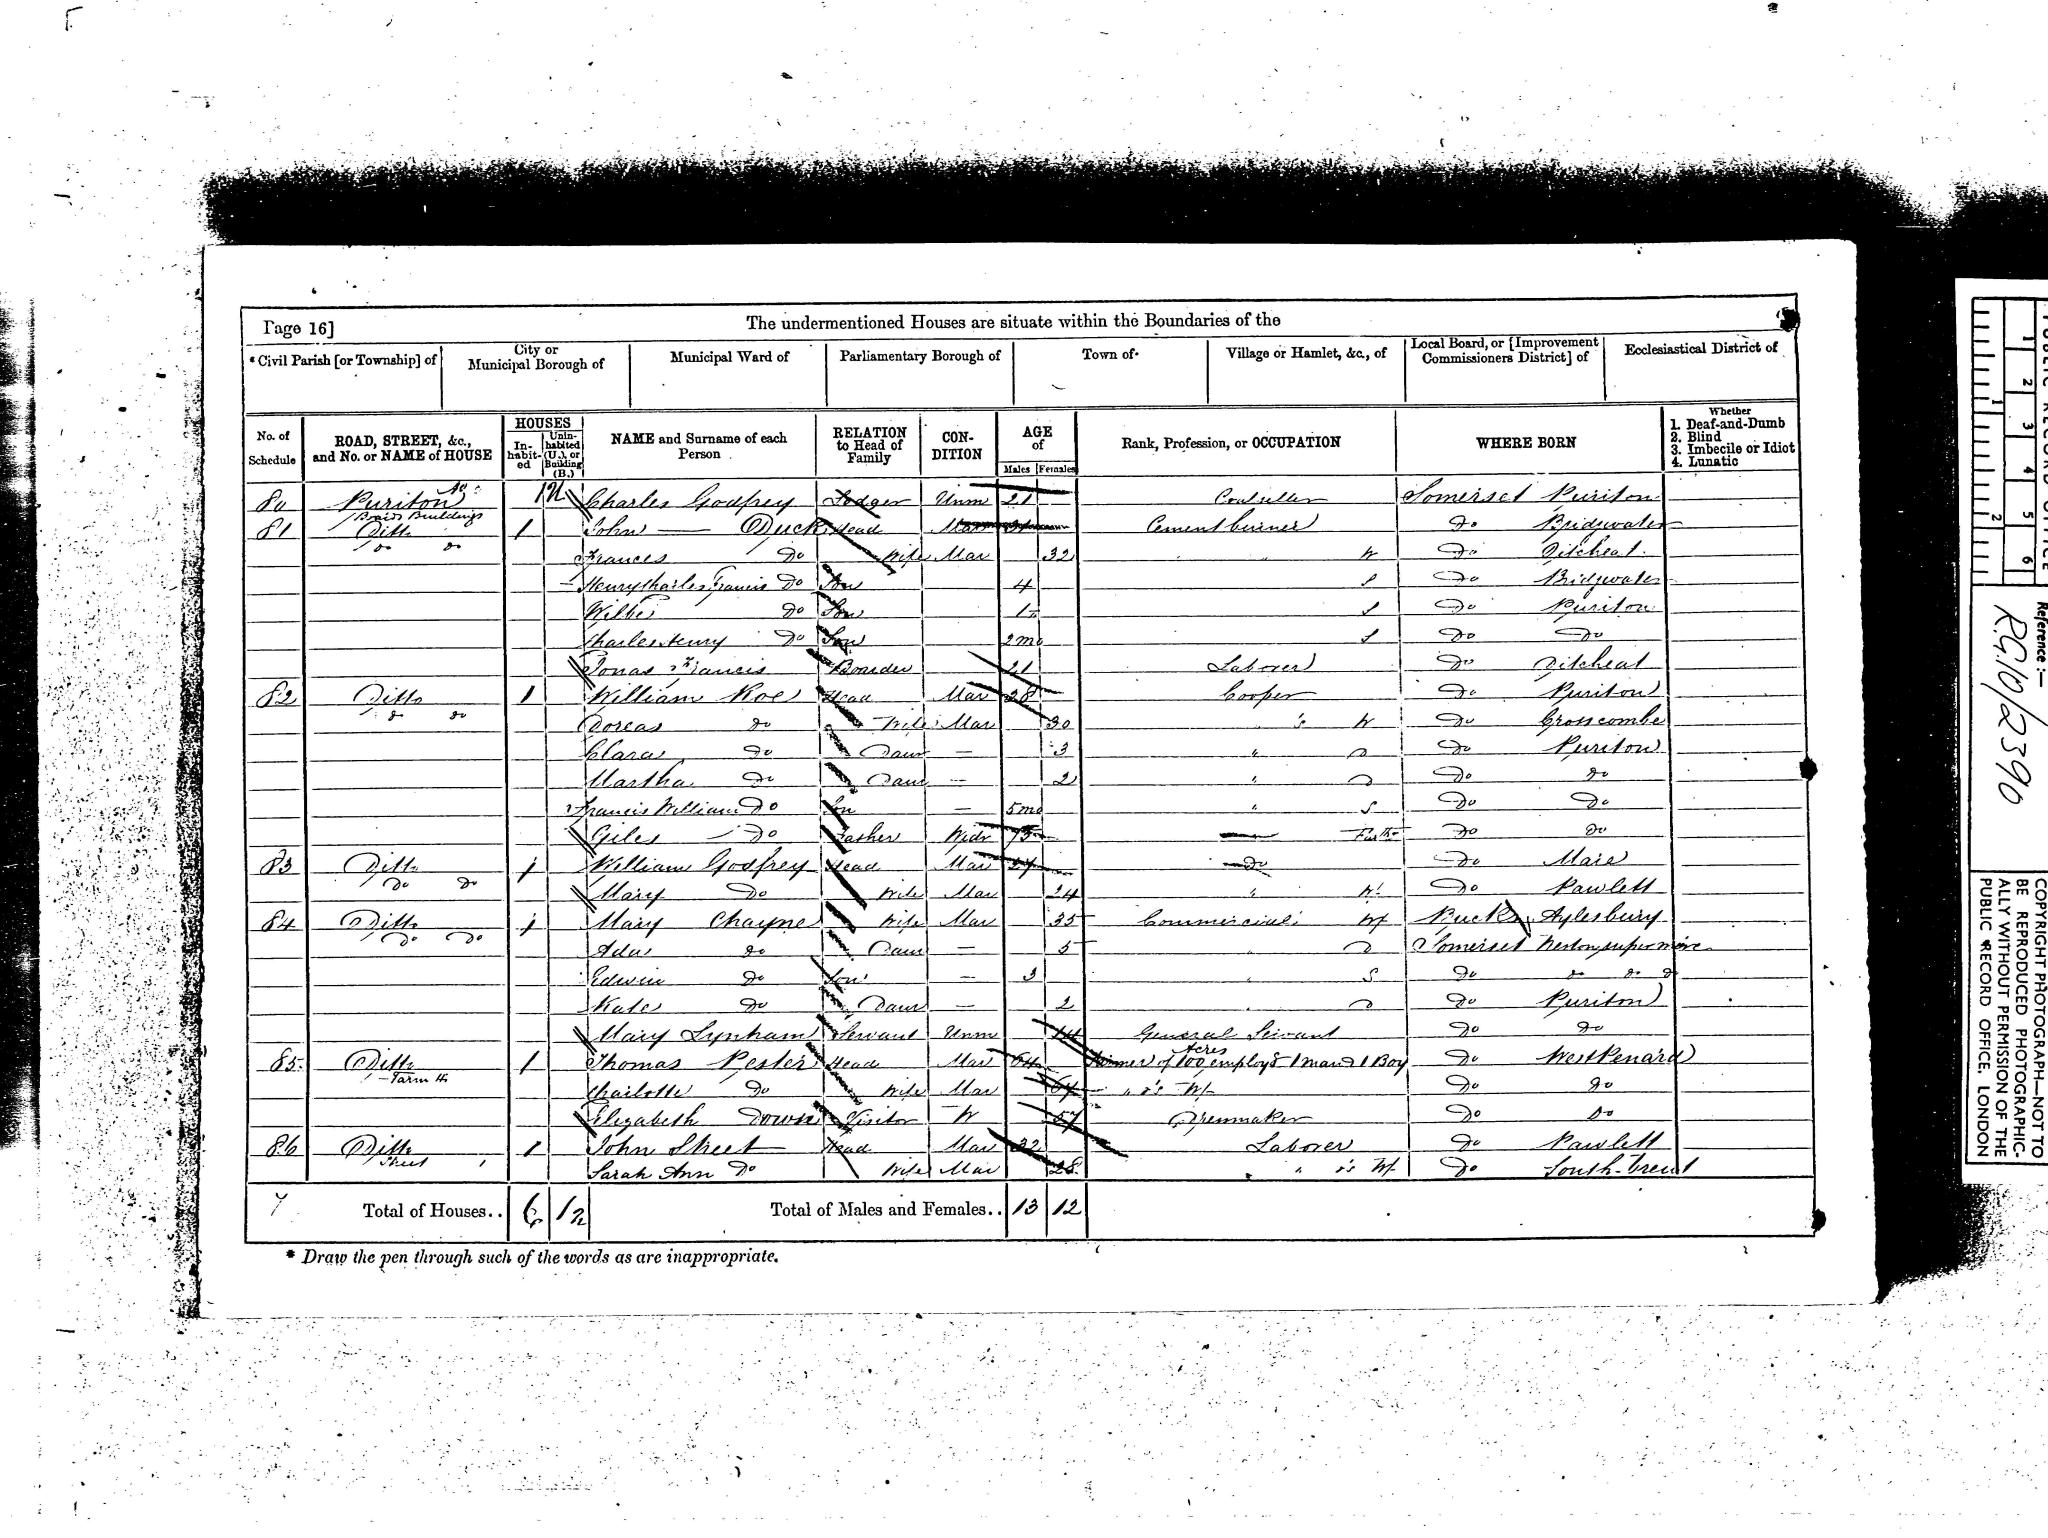 Page 16]
The undermentioned Houses are situate within the Boundaries of the
* Civil Parish [or Township] of
City or Municipal Borough of
Municipal Ward of
Parliamentary Borough of
Town of
Village or Hamlet, &c., of
Local Board, or [Improvement Commissioners District] of
Ecclesiastical District of
No. of Schedule
ROAD, STREET, &c., and No. or NAME of HOUSE
HOUSES
In-habit-ed
Unin-habited (U.), or Building (B.)
NAME and Surname of each Person
RELATION to Head of Family
CON-DITION
AGE of
Males Females
Rank, Profession, or OCCUPATION
WHERE BORN
Whether
1. Deaf-and-Dumb
2. Blind
3. Imbecile or Idiot
4. Lunatic
80 Puriton Charles Godfrey Lodger Unm 21 Somerset Puriton
Buildings
81 Ditto 1 John Duck Head Mar Cement burner Do Bridgwater
Do Do Frances Do Wife Mar 32 W Do Ditcheat
Henry Charles Francis Do Son 4 S Do Bridgwater
Do Son 1 S Do Puriton
Charles Henry Do Son 2 mo S Do Do
Jonas Francis Boarder 21 Laborer Do Ditcheat
82 Ditto 1 William Roe Head Mar 28 Cooper Do Puriton
do do Dorcas do Wife Mar 30 " 's W Do Crosscombe
Clara Do Daur — 3 " D Do Puriton
Martha Do Daur — 2 " D Do do
Francis William Do Son — 5 mo " S Do Do
Giles Do Father Widr 75 Do do
83 Ditto 1 William Godfrey Head Mar Do Do
Do Do Mary Do Wife Mar 24 " W Do Pawlett
84 Ditto 1 Mary Chayne Wife Mar 35 Commercial Wf Bucks Aylesbury
Do Do Ada do Daur — 5 D Somerset Weston super mare
Edwin do Son — 3 S Do do do do
Kate Do Daur — 2 D Do Puriton
Mary Lynham Servant Unm 14 General Servant Do Do
Acres
85 Ditto 1 Thomas Pester Head Mar 64 Farmer of 100 employs 1 man & 1 Boy Do West Penard
Farm Ho
Charlotte Do Wife Mar Wf Do do
Elizabeth Down Visitor W 57 Do Do
86 Ditto 1 John Street Head Mar 32 Laborer Do Pawlett
Street Sarah Ann Do Wife Mar 28 " Wf Do South brent
7 Total of Houses.. 6 Total of Males and Females.. 13 12
* Draw the pen through such of the words as are inappropriate.
PUBLIC RECORD OFFICE
1 2 3 4 5 6
1 2
Reference :—
R.G.10/2390
COPYRIGHT PHOTOGRAPH—NOT TO
BE REPRODUCED PHOTOGRAPHIC-
ALLY WITHOUT PERMISSION OF THE
PUBLIC RECORD OFFICE, LONDON